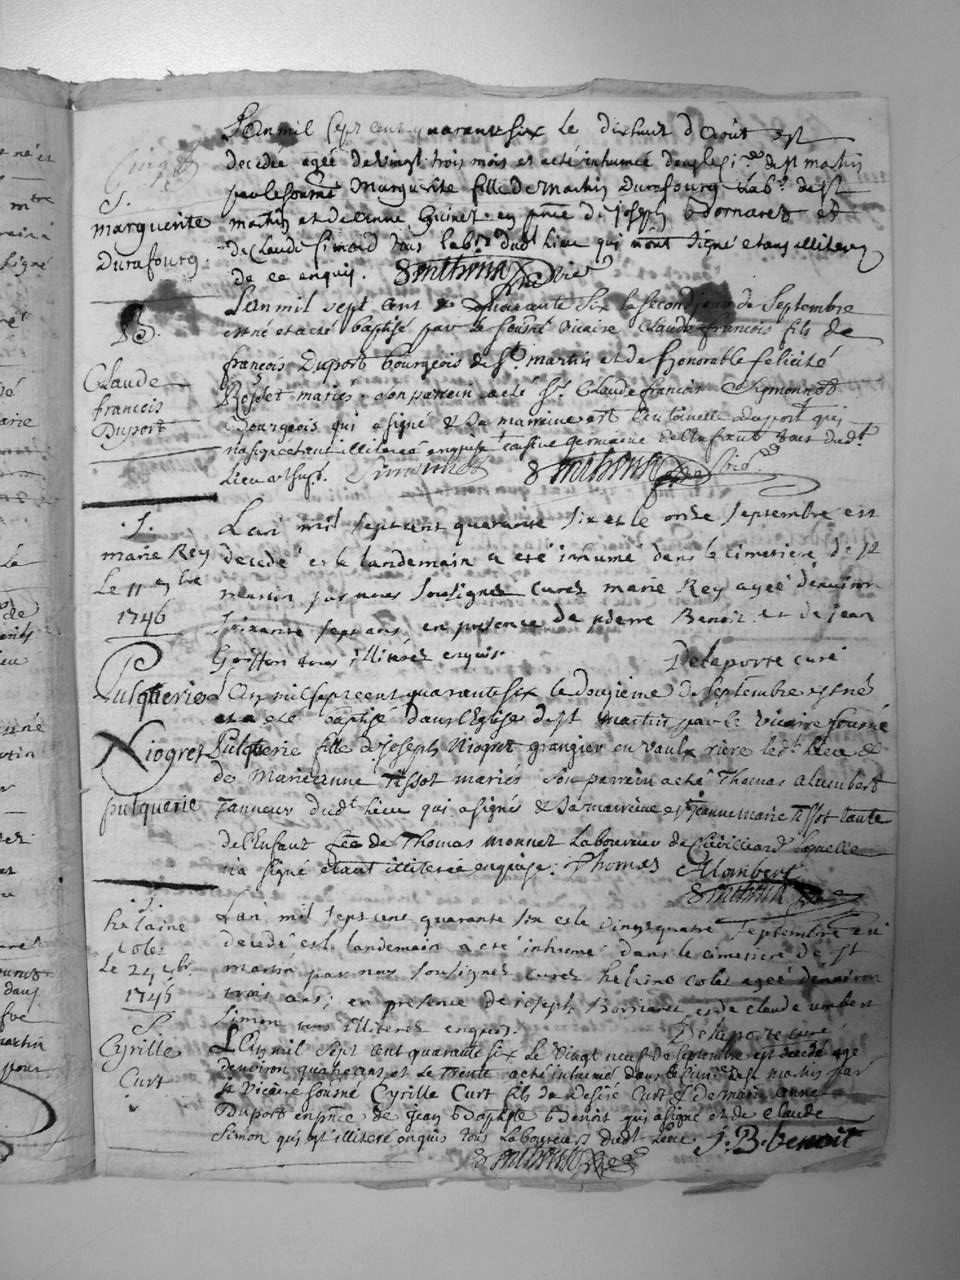 L'an mil sept cent quarante six le dixhuit d'Août est
decedée agée de vingt trois mois et a été inhumée dans le de St martin
par le sousné Marguerite fille de Martin Durafourg lab.r de St
S.
marguerite
Durafourg
martin et de en pnce de joseph et
de Claude Simond tous lab.rs dud.t lieu qui n'ont signé etans illiterez
de ce enquis.
B.
Claude
francois
Duport
L'an mil sept cent & quarante six le second jour de Septembre
est né et a été baptisé par le sousné vicaire Claude francois fils de
francois Duport bourgeois de St martin et de honorable felicité
mariés son parrein a été Sr. Claude francois Simonnet
Bourgeois qui a signé & sa marraine est Duport qui
n'a signé etant illiterée enquise germaine de l'enfant tous dud.t
Lieu
S.
marie Rey
Le 11 7bre
1746
L'an mil sept cent quarante six et le onze septembre est
decedé et le landemain a eté inhumé dans le cimetiere de St
martin par nous soussignez curez marie Rey agée d'environ
soixante sept ans, en presence de pierre Benoit et de jean
Goiffon tous illiterez enquis.
Delaporte curé
Pulquerie
Niogret
pulquerie
L'an mil sept cent quarante six le douzieme de septembre est né
et a eté baptisé dans l'Eglise de St martin par le vicaire sousné
Pulquerie fille de joseph Niogret grangier en vaulx riere led.t lieu &
de Marie anne Tissot mariés son parrein a été Thomas alumbert
Tanneur dud.t lieu qui a signé & sa marreine est jeanne marie Tissot tante
de l'Enfant de Thomas monnet Labourier de Chevilliard laquelle
n'a signé etant illiterée enquise. Thomas Alombert
S.
helaine
colet
Le 24 7br.
1746
L'an mil sept cent quarante six et le vingt quatre septembre est
decedé et le landemain a eté inhumé dans le cimetiere de St
martin par nous soussignez curez helaine colet agée d'environ
trois ans; en presence de joseph et de claude umbert
simon tous illiterez enquis.
Delaporte curé
S.
Cyrille
Curt
L'an mil sept cent quarante six le vingt neuf de septembre est decedé agé
d'environ quatre ans et le trente a eté inhumé dans le de St martin par
le vicaire sousné Cyrille Curt fils de Desiré Curt & de marie anne
Duport en pnce de jean Baptiste Benoit qui a signé et de claude
Simon qui est illiteré enquis tous Laboureurs dud.t Lieu. J. B. benoit